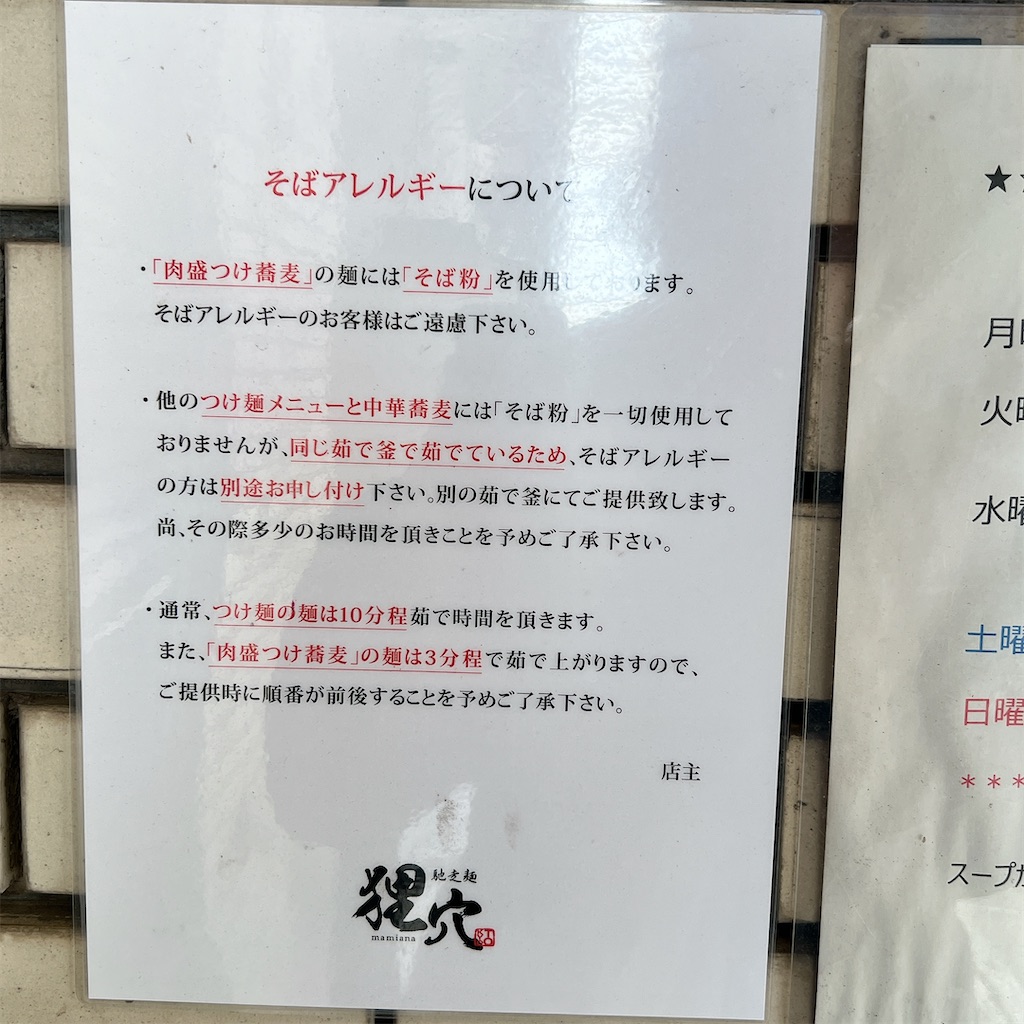 そばアレルギーについて
・「肉盛つけ蕎麦」の麺には「そば粉」を使用しております。
そばアレルギーのお客様はご遠慮下さい。
・他のつけ麺メニューと中華蕎麦には「そば粉」を一切使用して
おりませんが、同じ茹で釜で茹でているため、そばアレルギー
の方は別途お申し付け下さい。別の茹で釜にてご提供致します。
尚、その際多少のお時間を頂きことを予めご了承下さい。
・通常、つけ麺の麺は10分程茹で時間を頂きます。
また、「肉盛つけ蕎麦」の麺は3分程で茹で上がりますので、
ご提供時に順番が前後することを予めご了承下さい。
店主
馳走麺
狸穴
mamiana
★
月曜
火曜
水曜
土曜
日曜
***
スープが